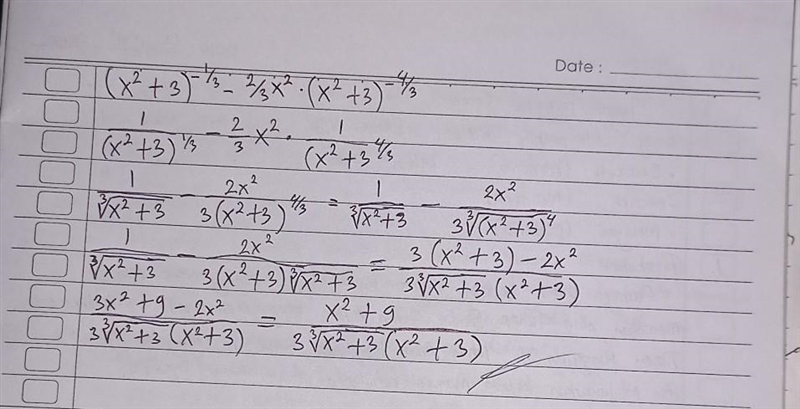 Date :
(x² + 3)^{-1/3} - 2/3 x² · (x² + 3)^{-4/3}
1/(x² + 3)^{1/3} - 2/3 x² · 1/(x² + 3^{4/3}
1/∛(x² + 3) - 2x²/(3(x² + 3)^{4/3}) = 1/∛(x² + 3) - 2x²/(3∛((x² + 3)⁴))
1/∛(x² + 3) - 2x²/(3(x² + 3)∛(x² + 3)) = (3(x² + 3) - 2x²)/(3∛(x² + 3) (x² + 3))
(3x² + 9 - 2x²)/(3∛(x² + 3) (x² + 3)) = (x² + 9)/(3∛(x² + 3) (x² + 3))